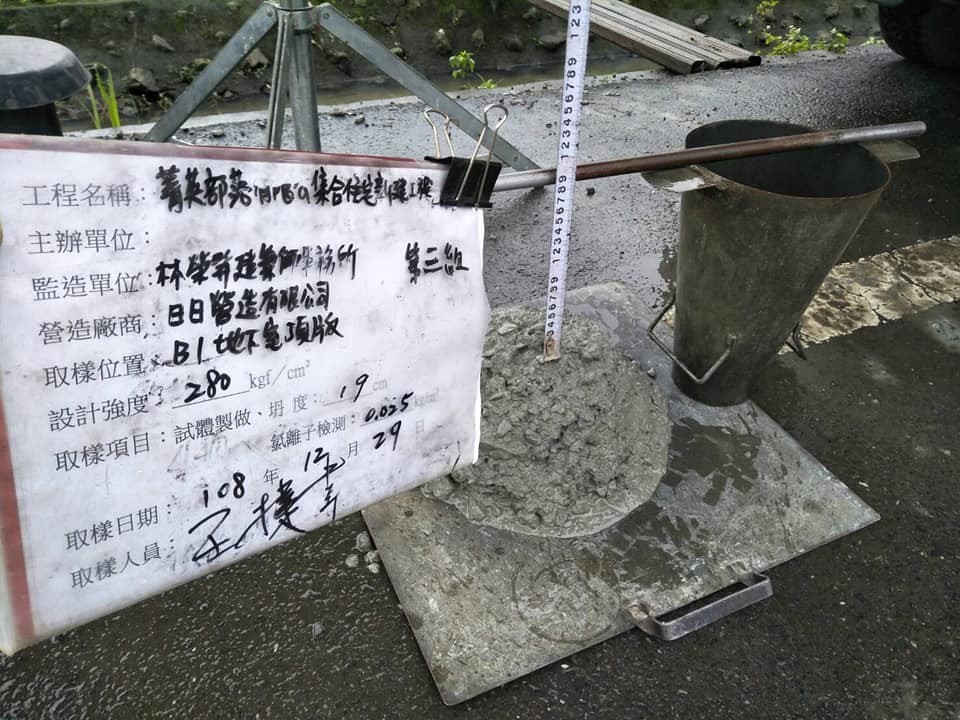 工程名稱：菁英部落 集合住宅新建工程
主辦單位：
監造單位：林榮 建築師事務所 第三組
營造廠商：日日營造有限公司
取樣位置：B1地下室頂版
設計強度：280 kgf/cm²
取樣項目：試體製做、坍度：19 cm
氯離子檢測：0.025 kg/m³
取樣日期：108年12月29日
取樣人員：